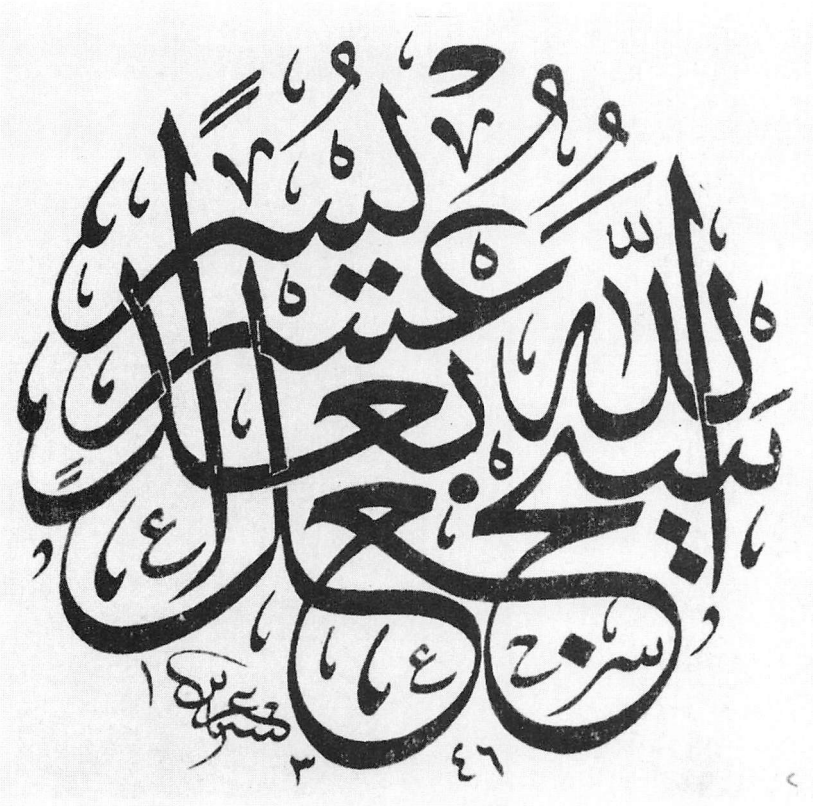 سَيَجْعَلُ اللّٰهُ بَعْدَ عُسْرٍ يُسْرًا
١٣٤٦